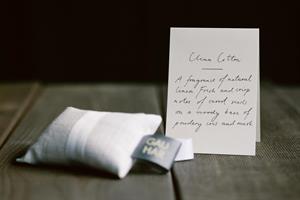 Clean Cotton
A fragrance of natural
linen. Fresh and crisp
notes of
on a woody base of
powdery and musk